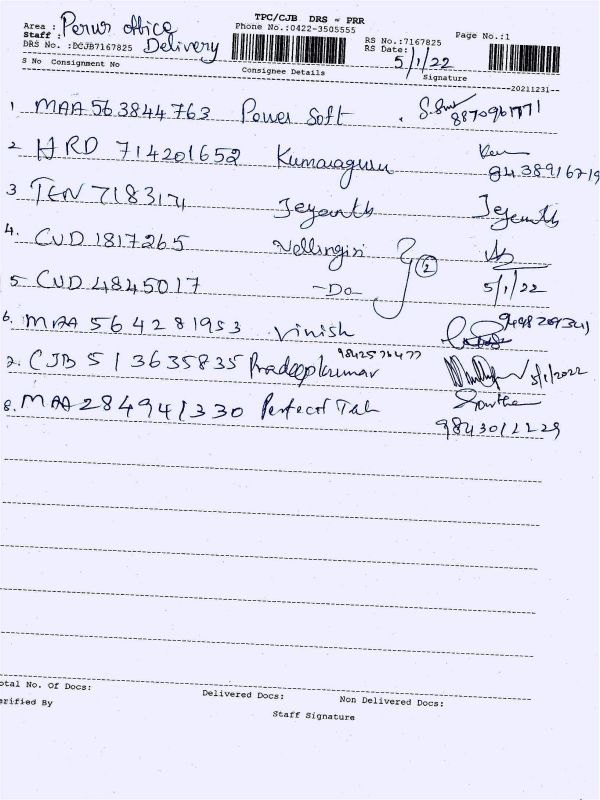 TPC/CJB DRS - PRR
Area : Perur office
Phone No.:0422-3505555
Page No.:1
Staff : Delivery
RS No.:7167825
DRS No. :DCJB7167825
RS Date: 5/1/22
S No Consignment No Consignee Details Signature
--20211231--
1 MAA 563844763 Power Soft 8870961771
2 HRD 714201652 Kumaraguru 8438916719
3 TEN 7183171 Jeyanth Jeyanth
4. CUD 1817265 Vellingiri
2
5. CUD 4845017 -Do- 5/1/22
6. MAA 564281953 Vinish
7. CJB 513635835 Pradeepkumar 9842576477 5/1/2022
8. MAA 284941330 Perfect
9843012229
otal No. Of Docs: Delivered Docs: Non Delivered Docs:
erified By Staff Signature